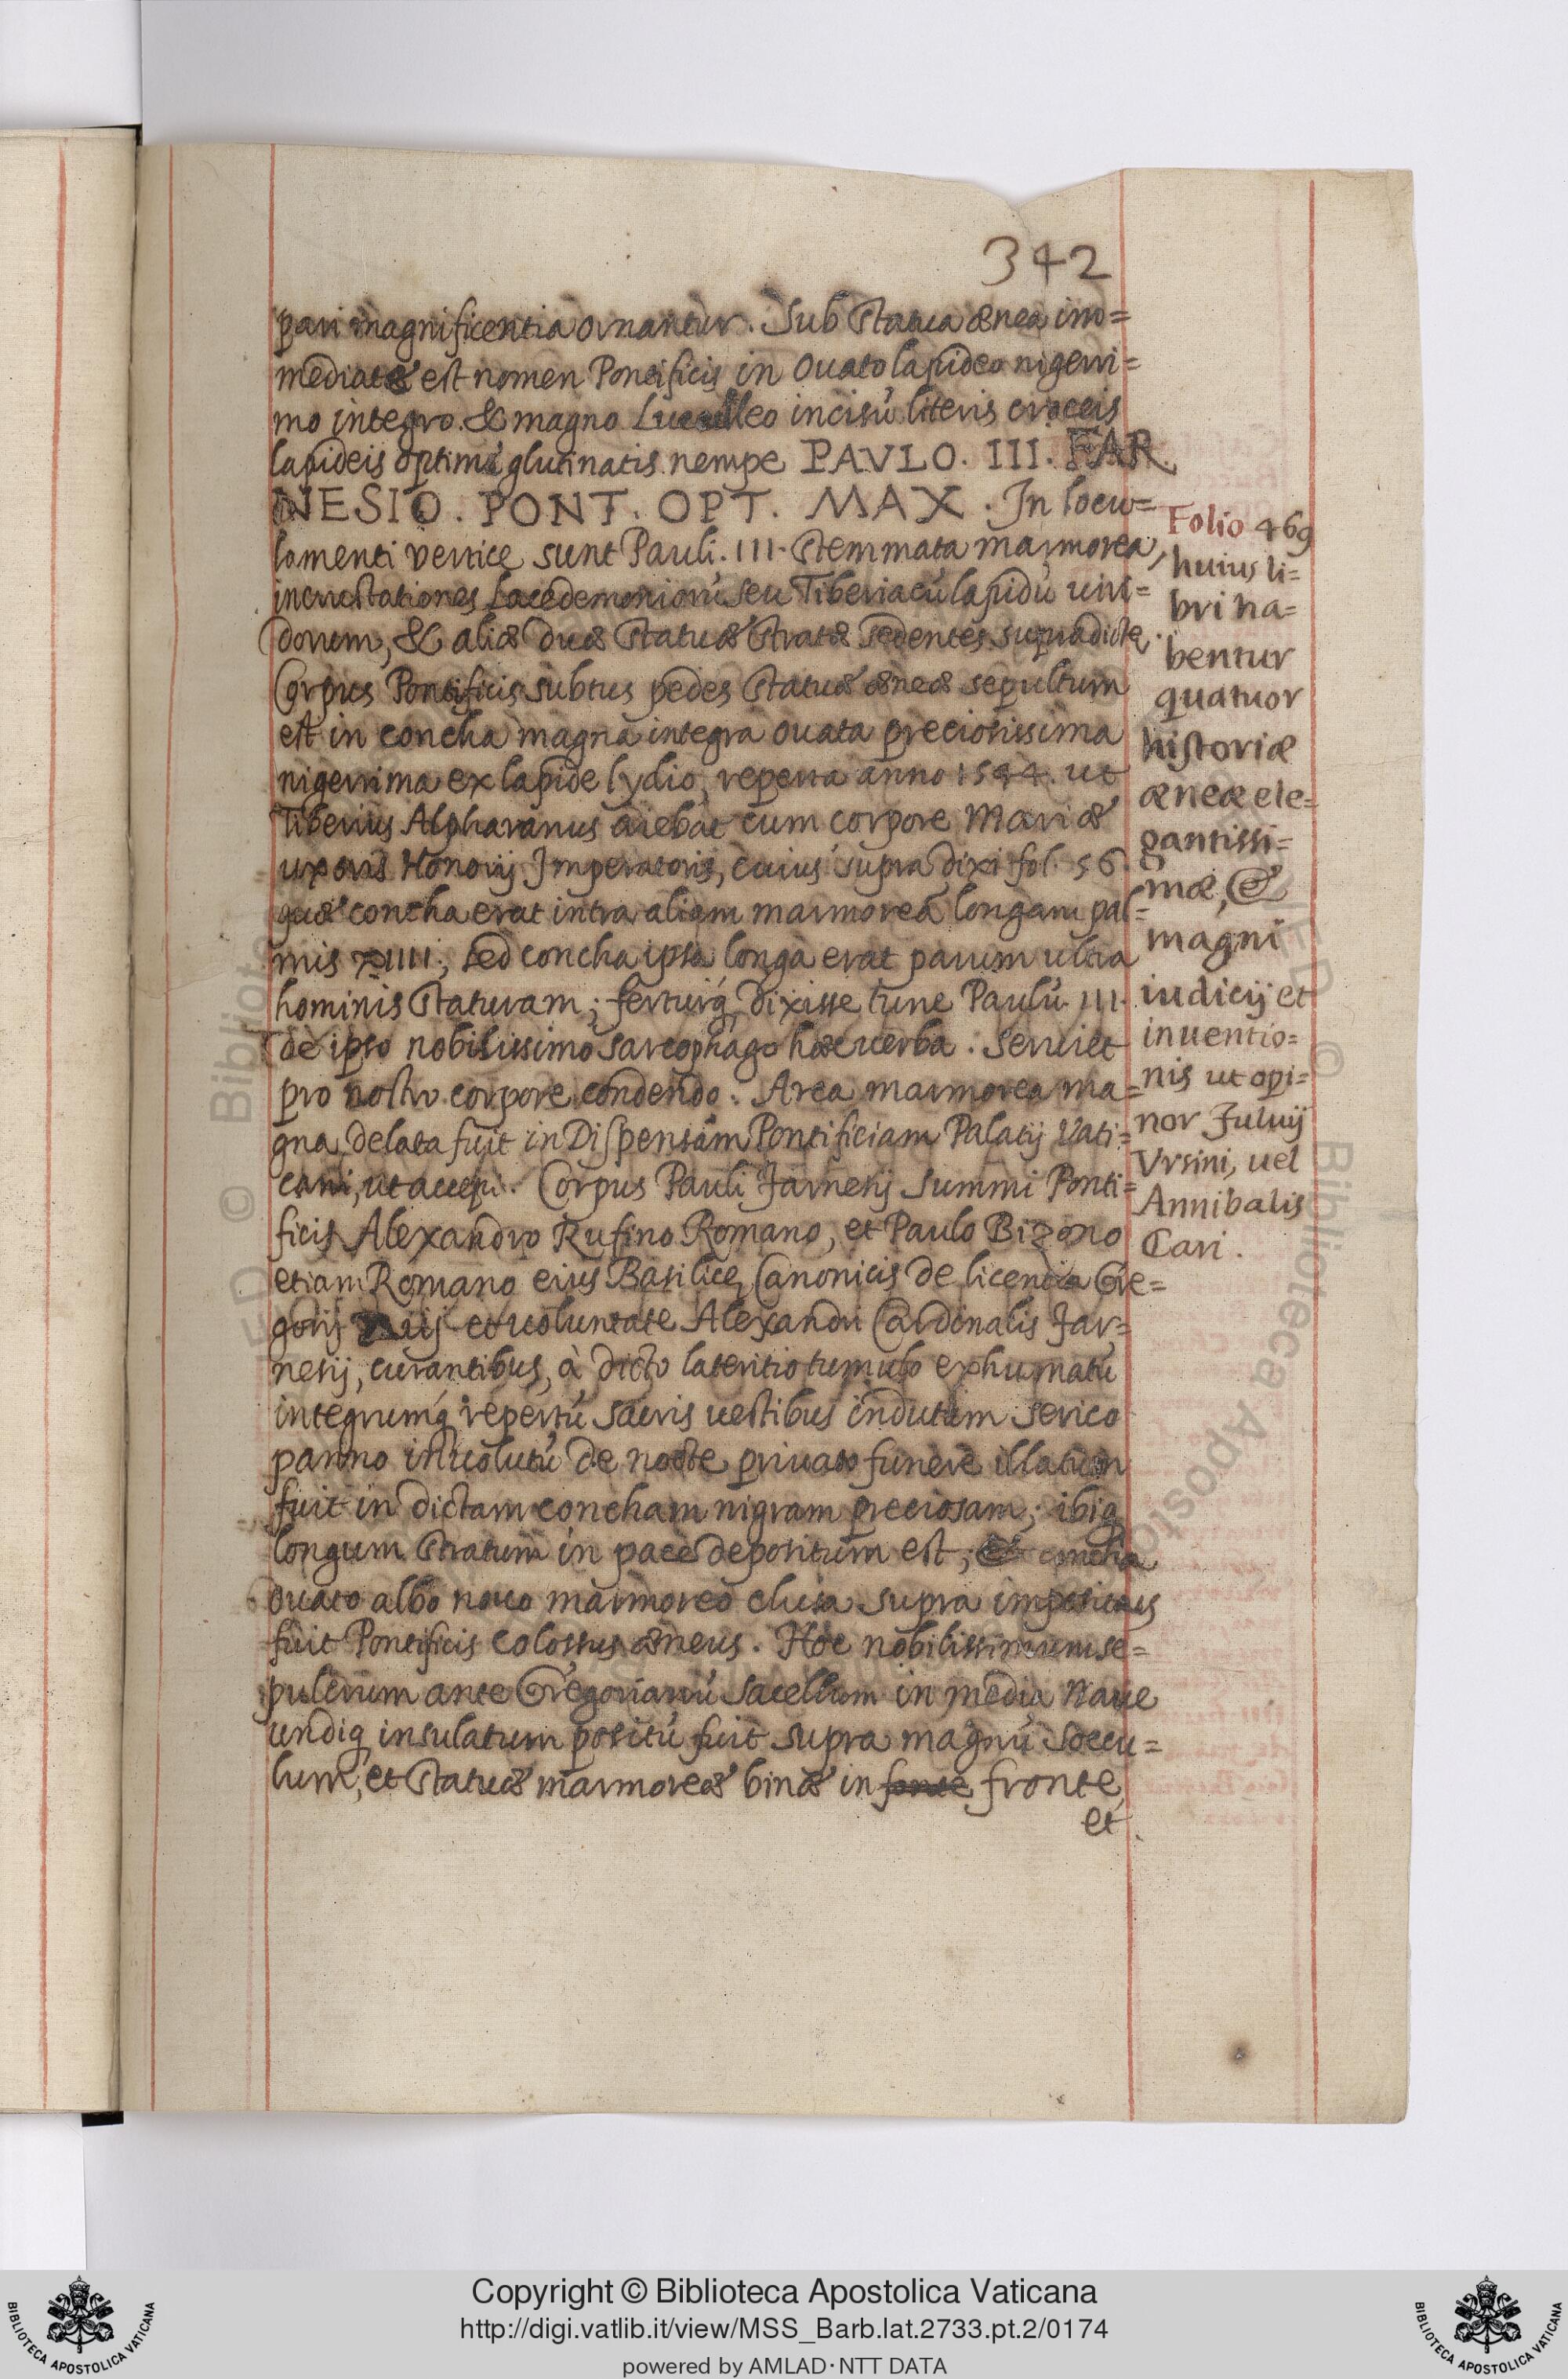 342
pari magnificentia ornantur. Sub statua ænea im=
mediatè est nomen Pontificis in ouato lapideo nigerri=
mo integro. & magno Lucculleo incisũ literis croceis
lapideis optimè glutinatis nempe PAVLO. III. FAR
NESIO. PONT. OPT. MAX. In locu=
lamenti vertice sunt Pauli. III. stemmata marmorea,
incrustationes Lacedemoniorũ seu Tiberiacũ lapidũ viri=
dorum, & aliæ duæ statuæ stratæ sedentes supradictę.
Corpus Pontificis subtus pedes statuæ æneæ sepultum
est in concha magna integra ouata preciosissima
nigerrima ex lapide lydio, reperta anno 1544. ut
Tiberius Alpharanus aiebat cum corpore Mariæ
uxoris Honorij Imperatoris, cuius supra dixi fol. 56.
quæ concha erat intra aliam marmoreã longam pal=
mis XIIII; sed concha ipsa longa erat parum ultra
hominis staturam; ferturq́ dixisse tunc Paulũ III.
de ipso nobilissimo sarcophago hæc uerba. Seruiet
pro nostro corpore condendo. Arca marmorea ma=
gna delata fuit in Dispensam Pontificiam Palatij Vati=
cani, ut accepi. Corpus Pauli Farnesij Summi Ponti=
ficis Alexandro Rufino Romano, et Paulo Bizono
etiam Romano eius Basilicę Canonicis de licentia Gre=
gorij Xiij et uoluntate Alexandri Cardinalis Far=
nesij, curantibus, à dicto lateritio tumulo exhumatũ
integrumq́ repertũ sacris uestibus indutum serico
panno inuolutũ de nocte priuato funere illatum
fuit in dictam concham nigram preciosam; ibiq
longum stratum in pace depositum est; et concha
ouato albo nouo marmoreo clusa supra impositus
fuit Pontificis colossus æneus. Hoc nobilissimum se=
pulcrum ante Gregorianũ sacellum in media Naue
undiq insulatum positũ fuit supra magnũ soccu=
lum, et statuæ marmoreæ binæ in fonte fronte,
et
Folio 469
huius li=
bri ha=
bentur
quatuor
historiæ
æneæ ele=
gantissi=
mæ, &
magni
iudicij et
inuentio=
nis ut opi=
nor Fuluij
Vrsini, uel
Annibalis
Cari.
Copyright © Biblioteca Apostolica Vaticana
http://digi.vatlib.it/view/MSS_Barb.lat.2733.pt.2/0174
powered by AMLAD·NTT DATA
BIBLIOTECA APOSTOLICA VATICANA
BIBLIOTECA APOSTOLICA VATICANA